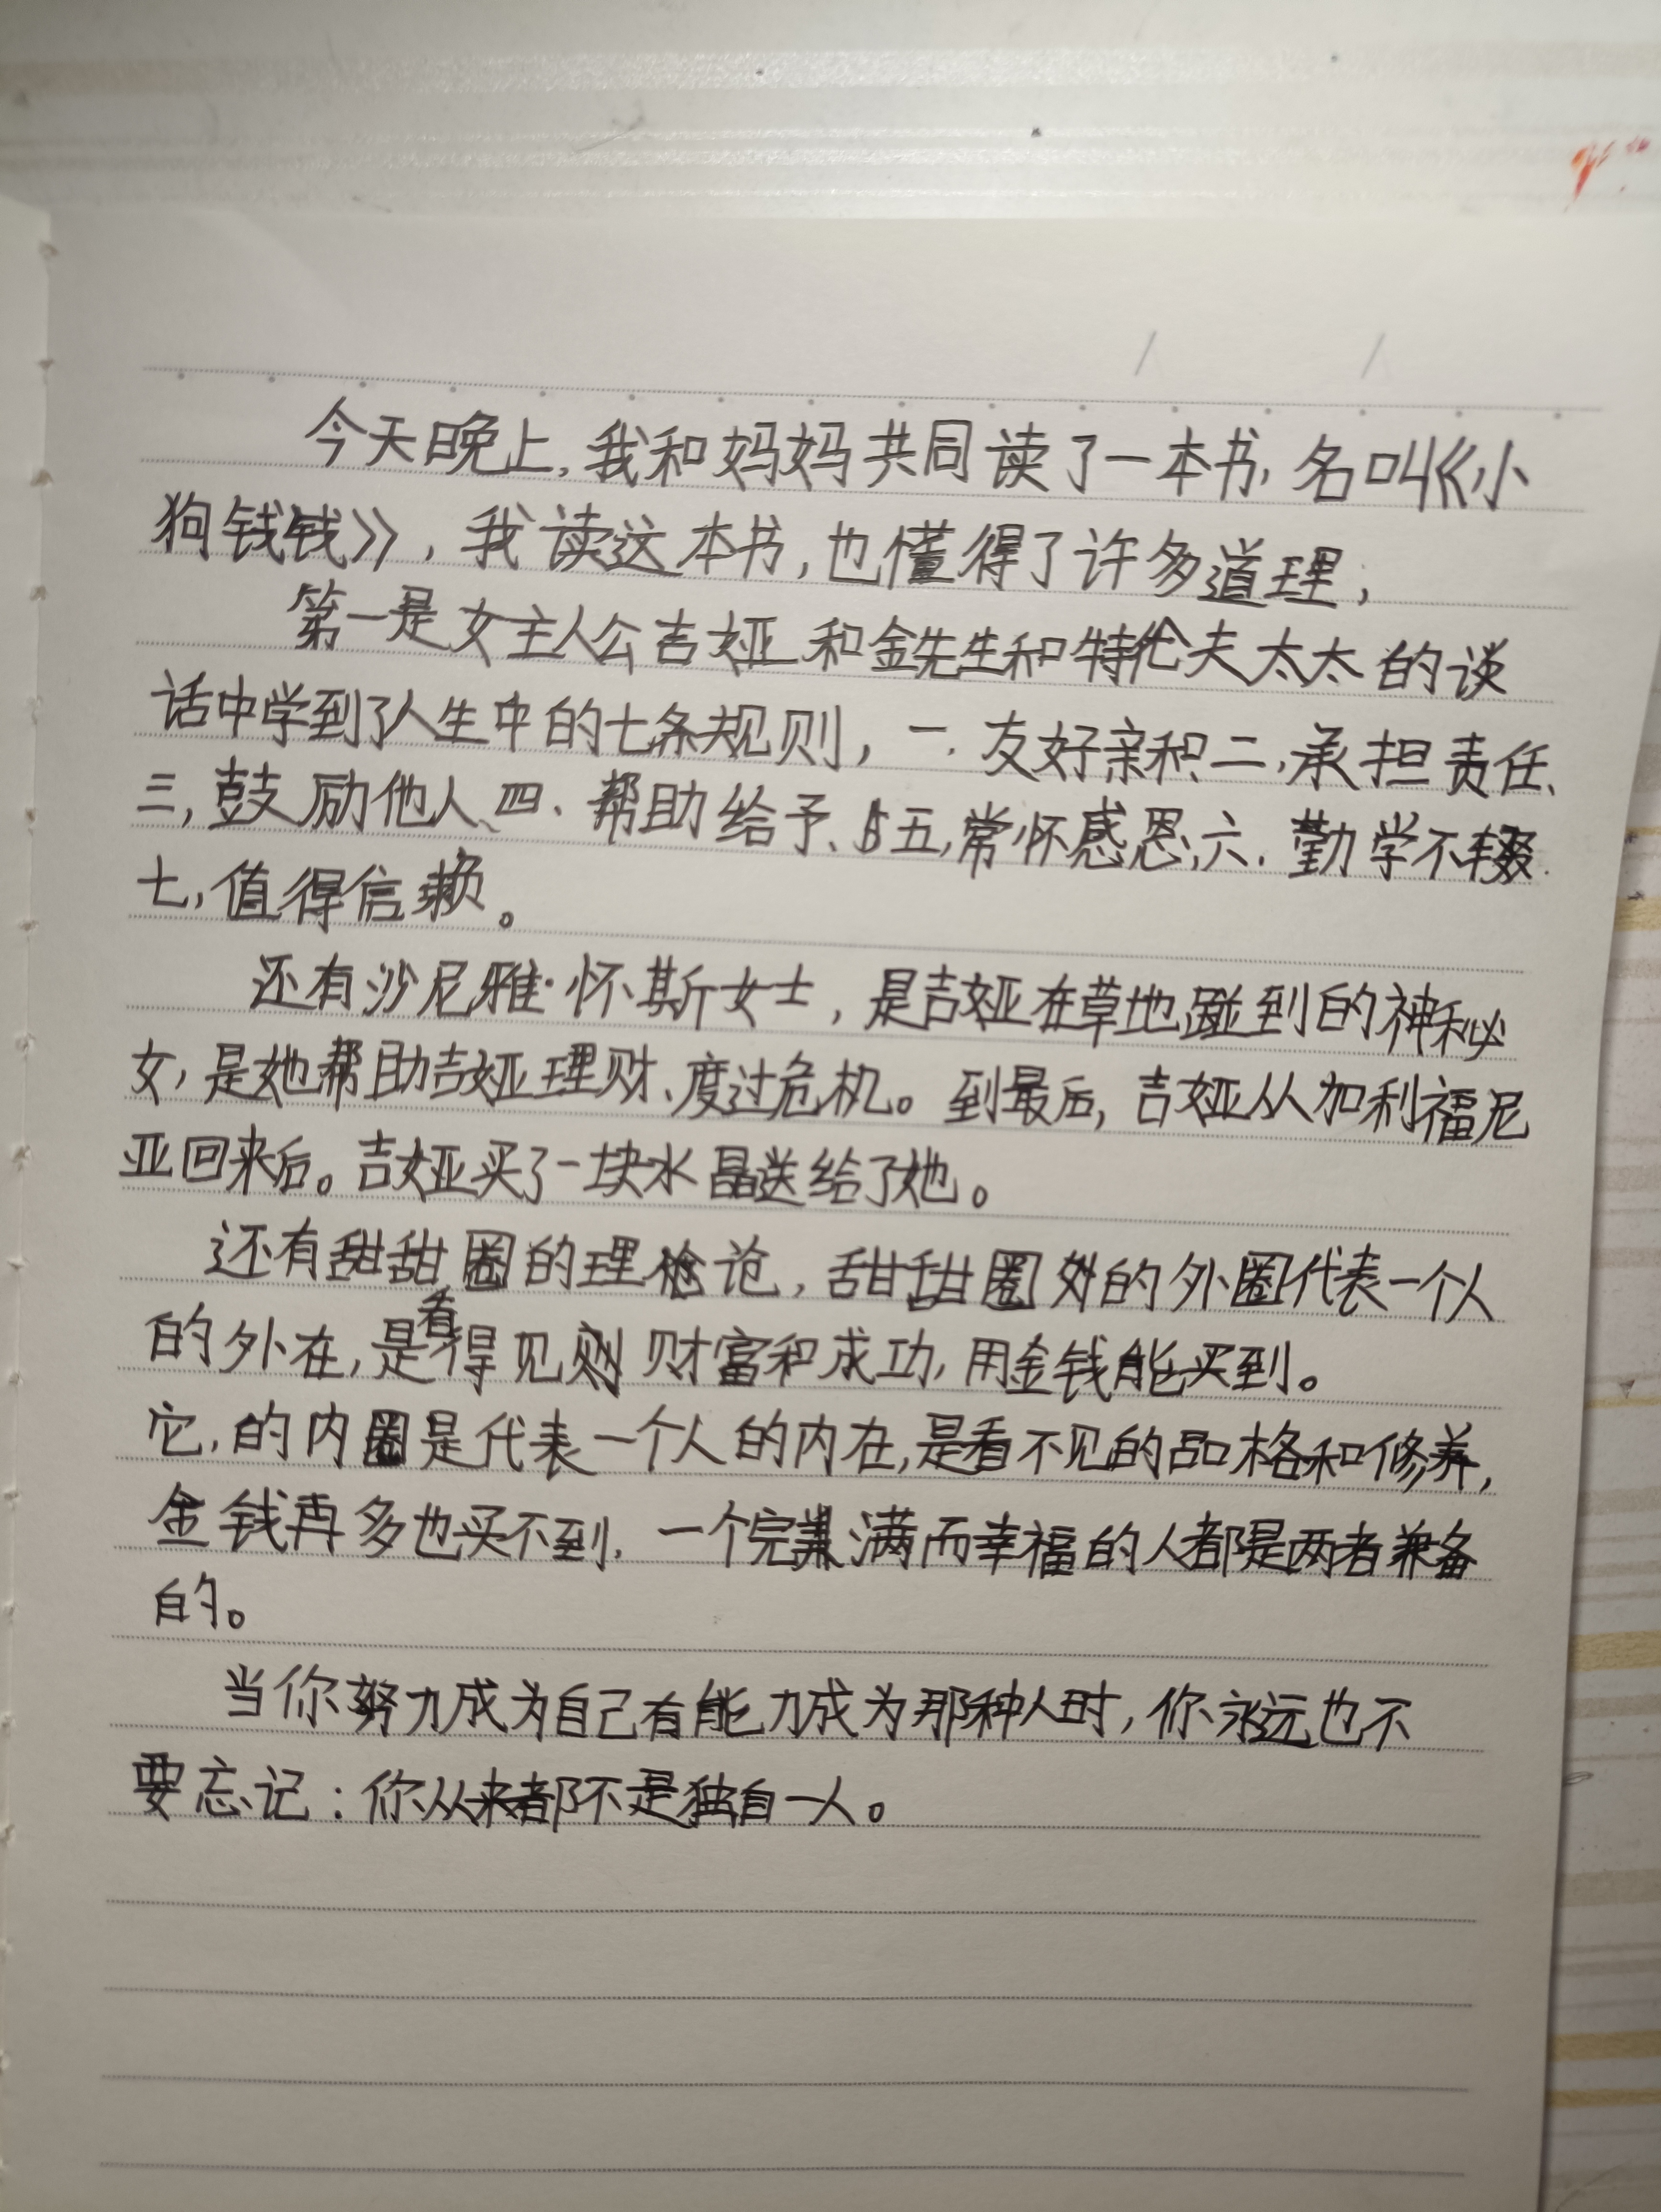 今天晚上，我和妈妈共同读了一本书，名叫《小
狗钱钱》，我读这本书，也懂得了许多道理；
第一是女主人公吉娅和金先生和特伦夫太太的谈
话中学到了人生中的七条规则，一.友好亲和、二，承担责任、
三，鼓励他人、四、帮助给予、五，常怀感恩，六.勤学不辍.
七，值得信赖。
还有沙尼雅·怀斯女士，是吉娅在草地碰到的神秘
女，是她帮助吉娅理财、度过危机。到最后，吉娅从加利福尼
亚回来后。吉娅买了一块水晶送给了她。
还有甜甜圈的理论，甜甜圈的外圈代表一个人
的外在，是看得见财富和成功，用金钱能买到。
它，的内圈是代表一个人的内在，是看不见的品格和修养，
金钱再多也买不到，一个完满而幸福的人都是两者兼备
的。
当你努力成为自己有能力成为那种人时，你永远也不
要忘记：你从来都不是独自一人。